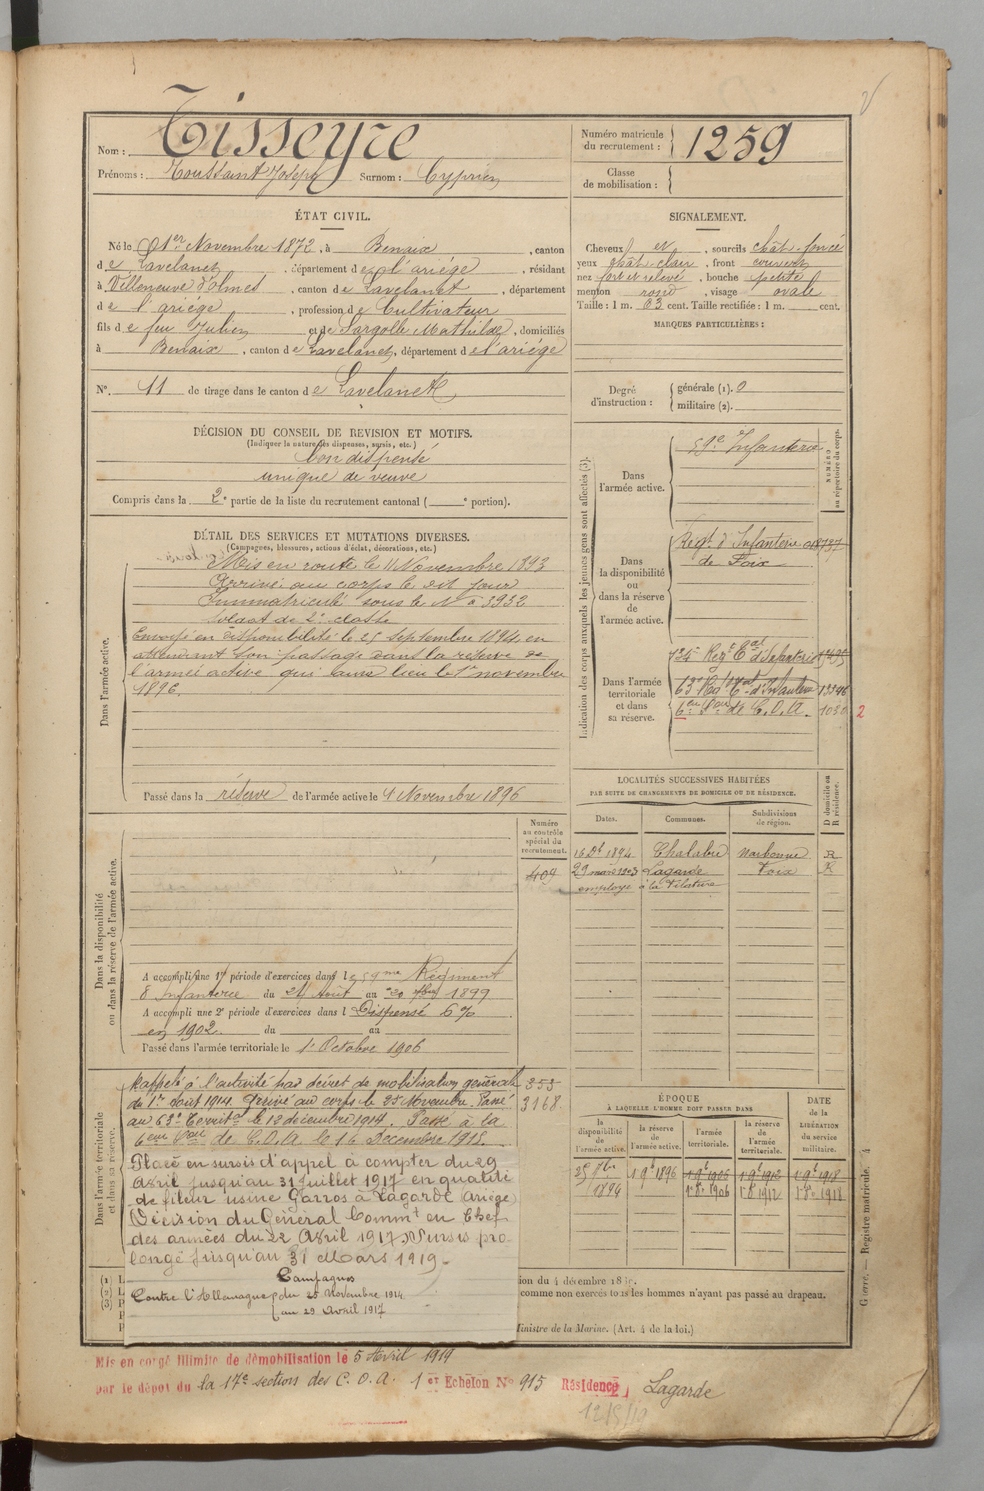 Nom : Tisseyre
Prénoms : Toussaint Joseph Surnom : Cyprien
Numéro matricule du recrutement : 1259
Classe de mobilisation :
ÉTAT CIVIL.
Né le 1er Novembre 1872, à Benaix, canton
de Lavelanet, département de l'ariége, résidant
à Villeneuve d'olmes, canton de Lavelanet, département
de l'ariége, profession de Cultivateur
fils de feu Julien et de Sargolle Mathilde, domiciliés
à Benaix, canton de Lavelanet, département de l'ariége
N° 11 de tirage dans le canton de Lavelanet
SIGNALEMENT.
Cheveux et, sourcils chât. foncé
yeux chât clair, front couvert
nez fort et relevé, bouche petite
menton rond, visage ovale
Taille : 1 m. 63 cent. Taille rectifiée : 1 m. cent.
MARQUES PARTICULIÈRES :
Degré d'instruction : générale (1). 0
militaire (2).
DÉCISION DU CONSEIL DE REVISION ET MOTIFS.
(Indiquer la nature des dispenses, sursis, etc.)
bon dispensé
unique de veuve
Compris dans la 2e partie de la liste du recrutement cantonal ( e portion).
DÉTAIL DES SERVICES ET MUTATIONS DIVERSES.
(Campagnes, blessures, actions d'éclat, décorations, etc.)
Dans l'armée active.
Mis en route le 11 Novembre 1893
Arrivé au corps le dit jour
Immatriculé sous le N° 3932
Soldat de 2e classe
Envoyé en disponibilité le 25 Septembre 1894 en
attendant son passage dans la réserve de
l'armée active qui aura lieu le 1er novembre
1896.
Passé dans la réserve de l'armée active le 1 Novembre 1896
Indication des corps auxquels les jeunes gens sont affectés (3).
NUMÉRO au répertoire du corps.
Dans l'armée active.
59e Infanterie
Dans la disponibilité ou dans la réserve de l'armée active.
Régt. d'Infanterie
de Foix
Dans l'armée territoriale et dans sa réserve.
134e Regt Cal d'Infanterie
63e Regt Cal d'Infanterie 13346
6eme Son de C.O.A. 1030 2
LOCALITÉS SUCCESSIVES HABITÉES
PAR SUITE DE CHANGEMENTS DE DOMICILE OU DE RÉSIDENCE.
Dates. Communes. Subdivisions de région. D domicile ou R résidence.
16 Dt 1894 Chalabre Narbonne R
29 mars 1903 Lagarde Foix R
employé à la Filature
Dans la disponibilité ou dans la réserve de l'armée active.
Numéro au contrôle spécial du recrutement.
409
A accompli une 1re période d'exercices dans le 59me Régiment
d'Infanterie du 24 Août au 20 7bre 1899
A accompli une 2e période d'exercices dans l Dispensé 6%
en 1902 du au
Passé dans l'armée territoriale le 1er Octobre 1906
Dans l'armée territoriale et dans sa réserve.
Rappelé à l'activité par décret de mobilisation générale 353
du 1er août 1914. Arrivé au corps le 25 Novembre. Passé 3168
au 63e Territal le 12 décembre 1914. Passé à la
6eme Son de C.O.A. le 16 Décembre 1915.
Placé en sursis d'appel à compter du 29
Avril jusqu'au 31 juillet 1917 en qualité
de fileur usine Garros à Lagarde (Ariège)
Décision du Général Commt en Chef
des armées du 22 Avril 1917. Sursis pro-
longé jusqu'au 31 Mars 1919.
Campagnes
Contre l'Allemagne du 25 Novembre 1914
au 29 Avril 1917
ÉPOQUE
À LAQUELLE L'HOMME DOIT PASSER DANS
la disponibilité de l'armée active. la réserve de l'armée active. l'armée territoriale. la réserve de l'armée territoriale.
DATE de la LIBÉRATION du service militaire.
25 7bre 1894 1 9e 1896 1 9e 1906 1 9e 1912 1 9e 1918
1 8e 1906 1 8e 1912 1 8e 1918
(1) L
(2) L
(3) P
comme non exercés tous les hommes n'ayant pas passé au drapeau.
Ministre de la Marine. (Art. 4 de la loi.)
Guerre. — Registre matricule. 4
Mis en congé illimité de démobilisation le 5 Avril 1919
par le dépôt du la 17e section des C.O.A. 1er Echelon N° 915 Résidence Lagarde
12/5/19